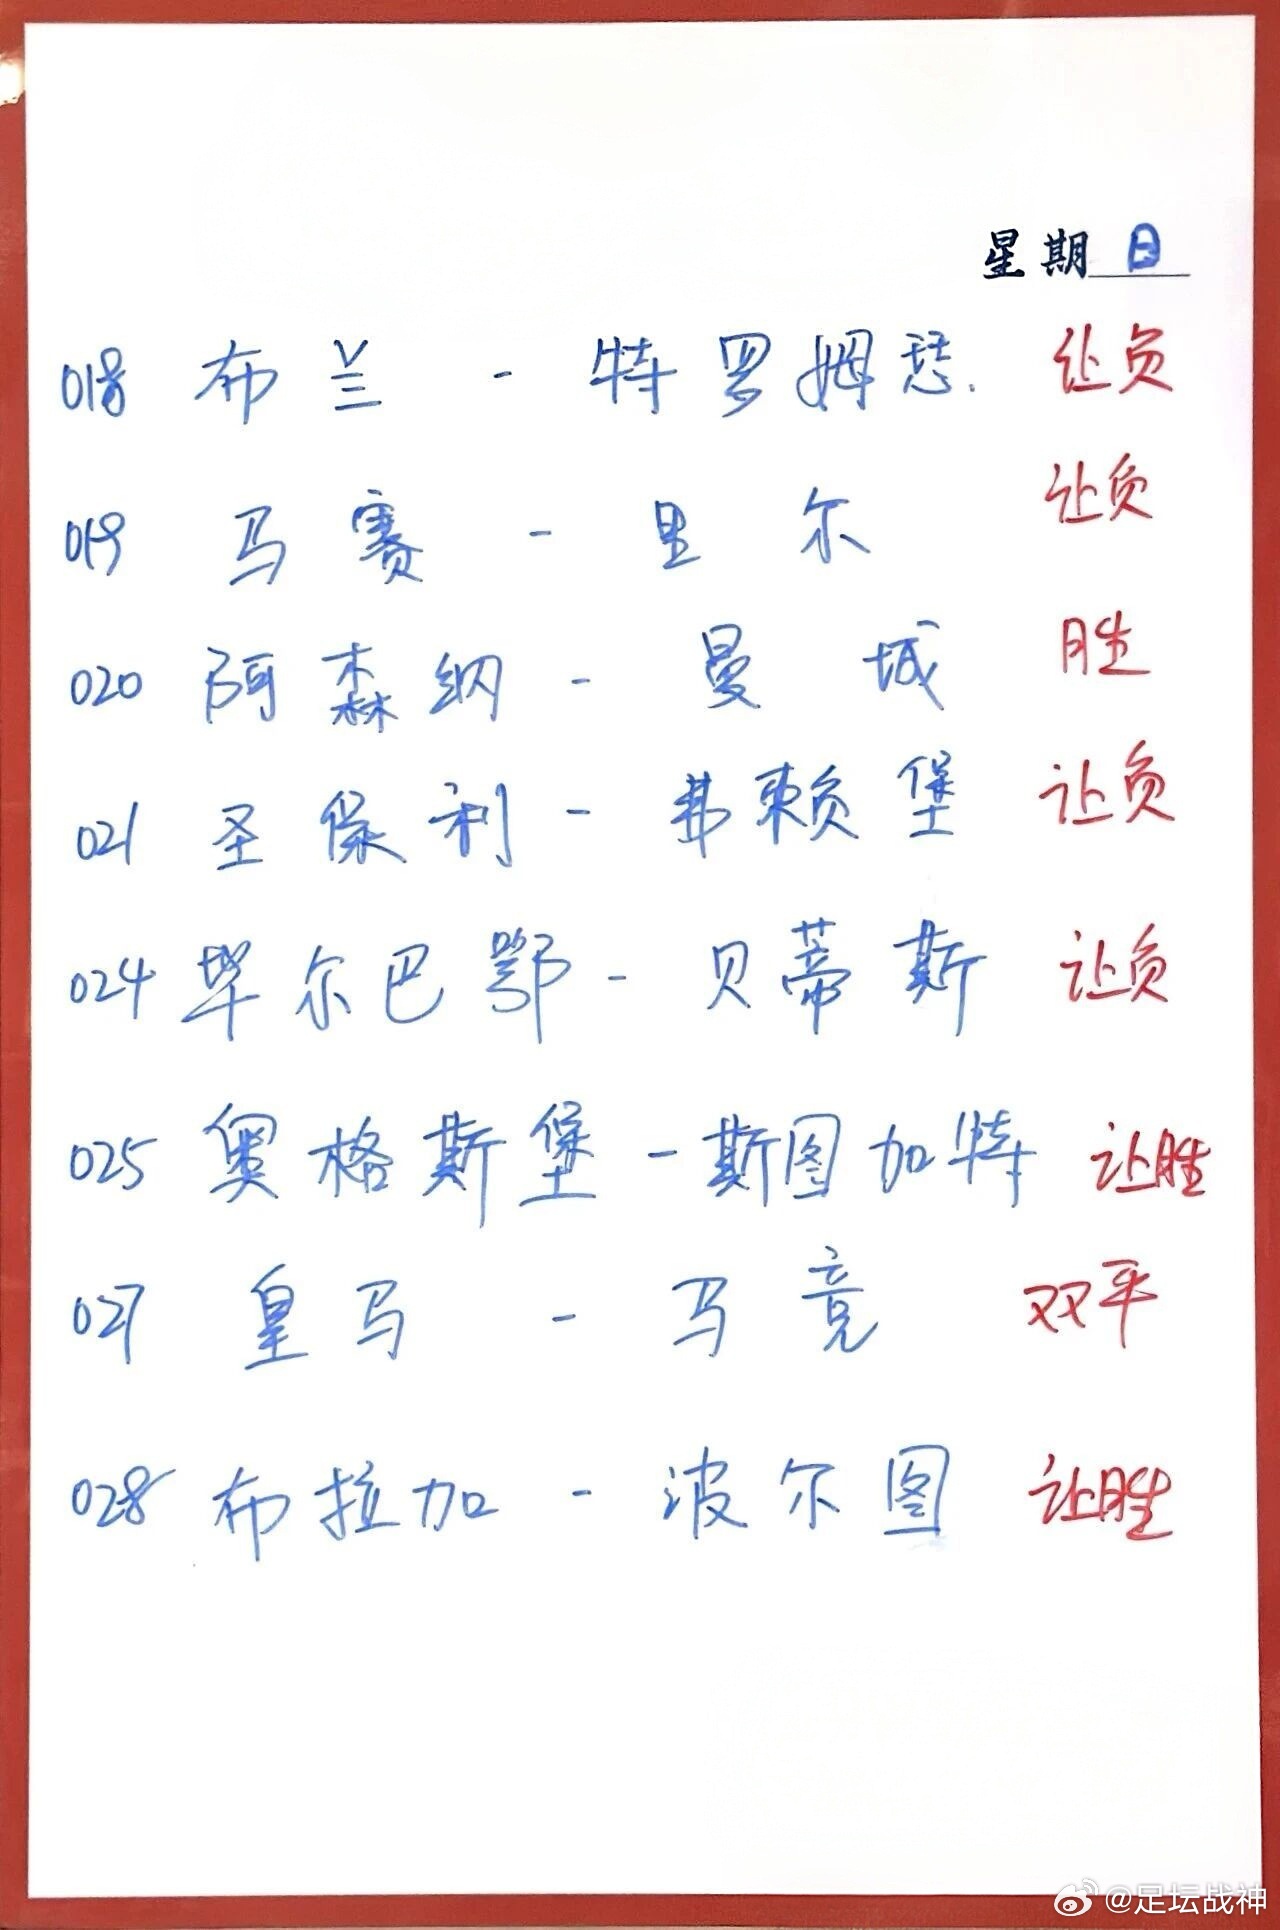 星期日
018 布兰 - 特罗姆瑟 让负
019 马赛 - 里尔 让负
020 阿森纳 - 曼城 胜
021 圣保利 - 弗赖堡 让负
024 毕尔巴鄂 - 贝蒂斯 让负
025 奥格斯堡 - 斯图加特 让胜
027 皇马 - 马竞 双平
028 布拉加 - 波尔图 让胜
@足坛战神